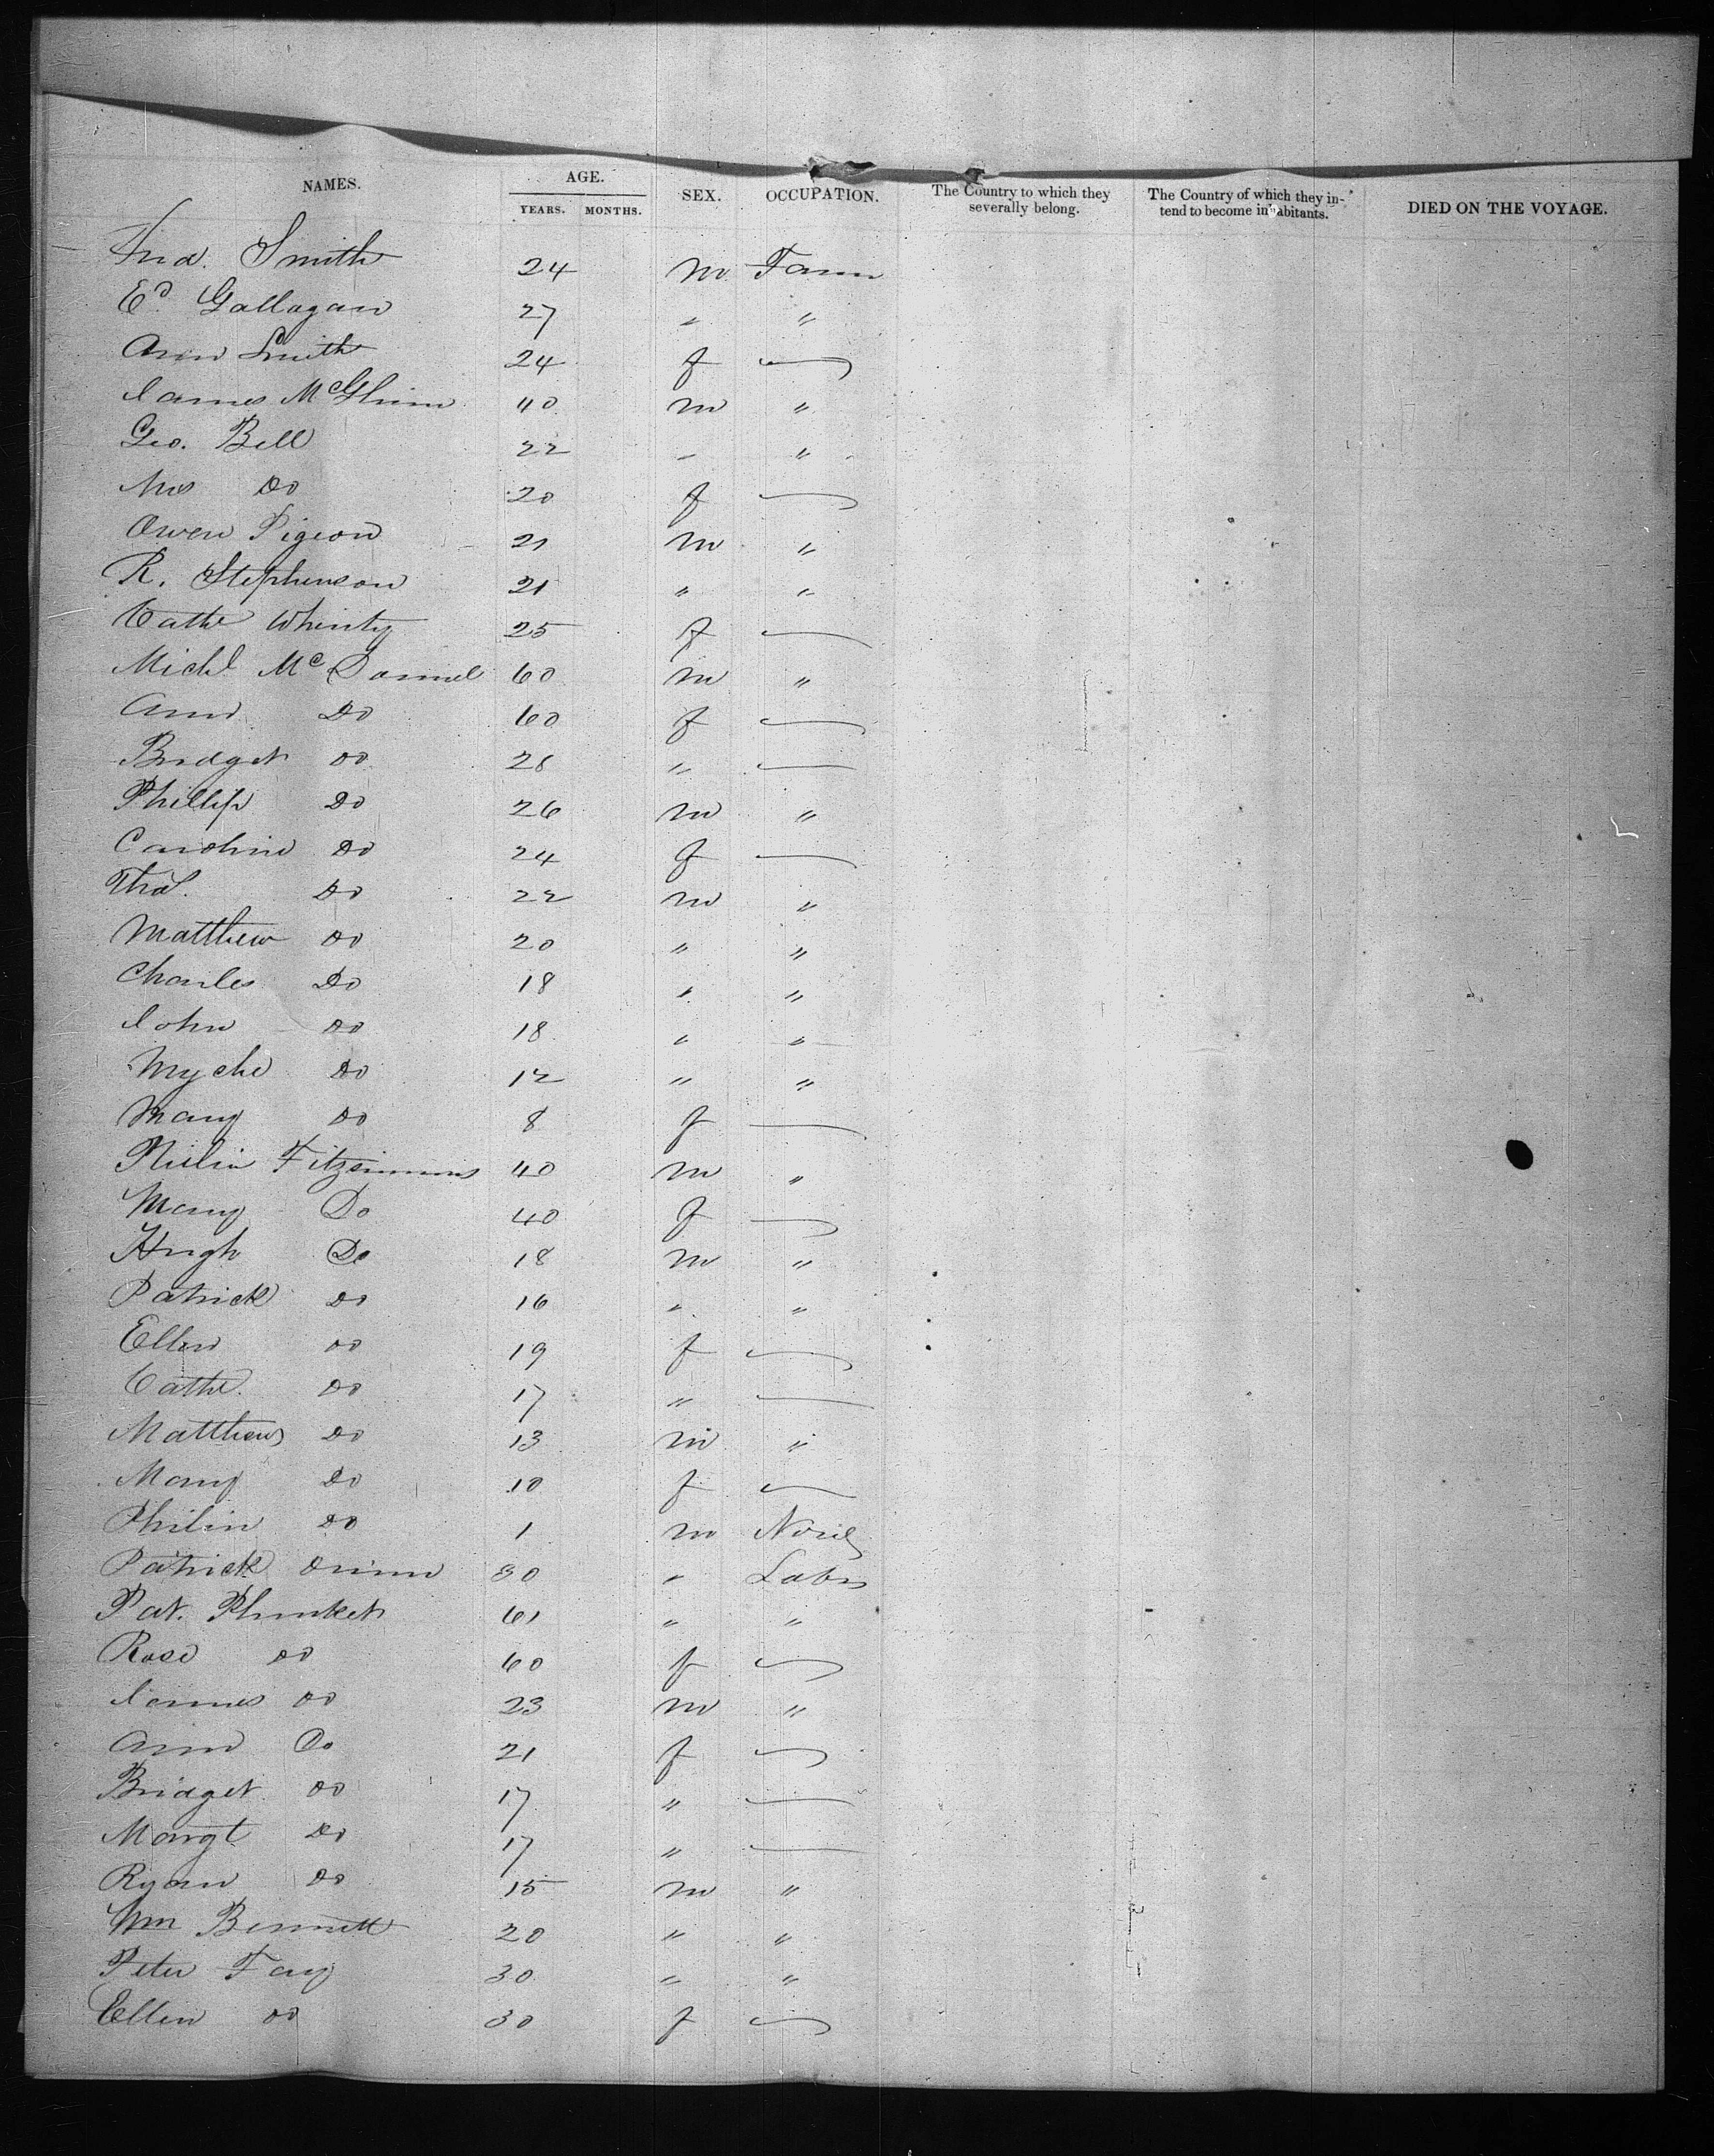 NAMES. AGE. YEARS. MONTHS. SEX. OCCUPATION. The Country to which they severally belong. The Country of which they intend to become inhabitants. DIED ON THE VOYAGE.
Smith 24 m Farm
Ed. Gallagan 27 " "
Ann Smith 24 f
James McGlinn 40 m "
Geo. Bell 22 " "
Mrs Do 20 f
Owen Pigeon 21 m "
R. Stephenson 21 " "
Cathe Whinty 25 f
Michl McDannel 60 m "
Ann Do 60 f
Bridget Do 28 "
Phillip Do 26 m "
Caroline Do 24 f
Thos. Do 22 m "
Matthew Do 20 " "
Charles Do 18 " "
John Do 18 " "
Do 12 " "
Mary Do 8 f
Fitzsimmins 40 m "
Mary Do 40 f
Hugh Do 18 m "
Patrick Do 16 " "
Ellen Do 19 f
Cathe. Do 17 "
Matthew Do 13 m "
Mary Do 10 f
Philip Do 1 m
Patrick 30 " Labr
Pat. Plunket 61 " "
Rose Do 60 f
James Do 23 m "
Ann Do 21 f
Bridget Do 17 "
Margt Do 17 "
Ryan Do 15 m "
Wm Bennett 20 " "
Peter Fay 30 " "
Ellen Do 30 f